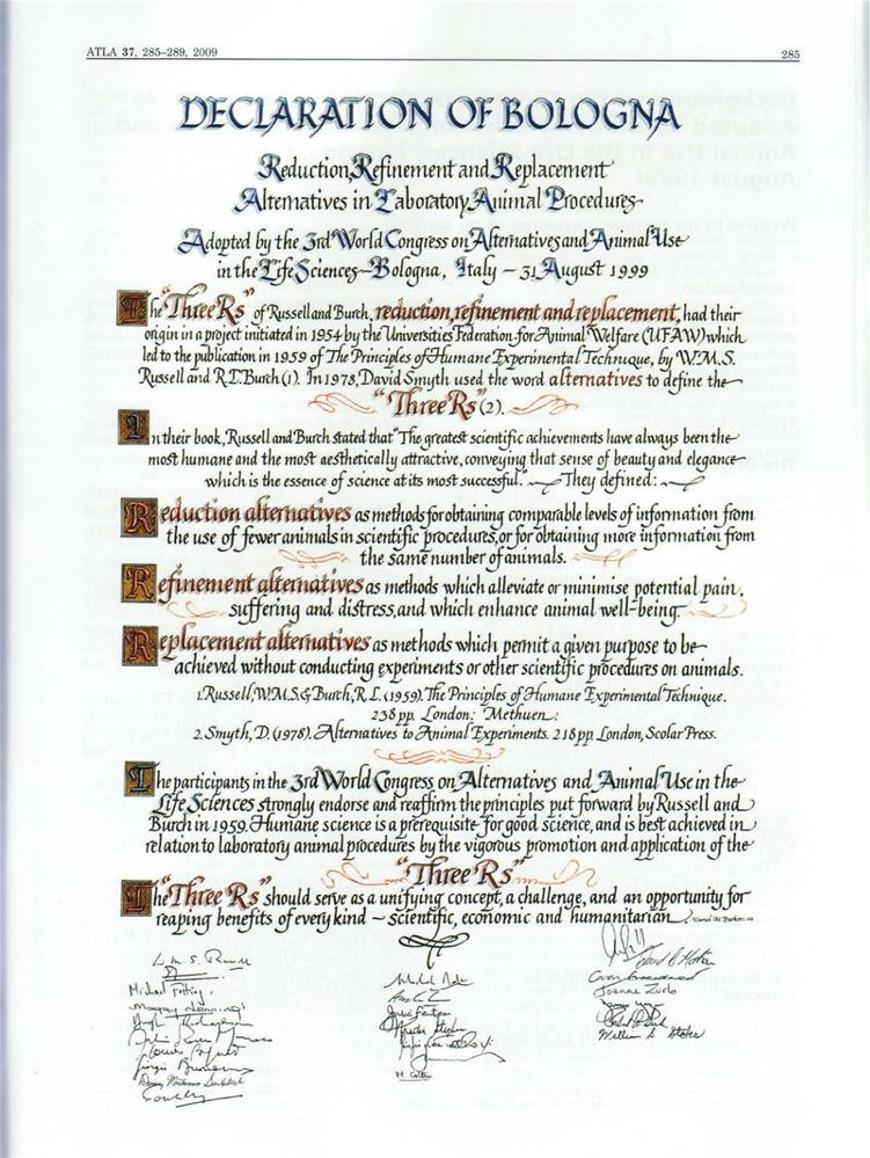 ATLA 37, 285–289, 2009
285
DECLARATION OF BOLOGNA
Reduction, Refinement and Replacement
Alternatives in Laboratory Animal Procedures
Adopted by the 3rd World Congress on Alternatives and Animal Use
in the Life Sciences – Bologna, Italy – 31 August 1999
The "Three Rs" of Russell and Burch, reduction, refinement and replacement, had their
origin in a project initiated in 1954 by the Universities Federation for Animal Welfare (UFAW) which
led to the publication in 1959 of The Principles of Humane Experimental Technique, by W.M.S.
Russell and R.L. Burch (1). In 1978, David Smyth used the word alternatives to define the
"Three Rs" (2).
In their book, Russell and Burch stated that "The greatest scientific achievements have always been the
most humane and the most aesthetically attractive, conveying that sense of beauty and elegance
which is the essence of science at its most successful." They defined:
Reduction alternatives as methods for obtaining comparable levels of information from
the use of fewer animals in scientific procedures, or for obtaining more information from
the same number of animals.
Refinement alternatives as methods which alleviate or minimise potential pain,
suffering and distress, and which enhance animal well-being.
Replacement alternatives as methods which permit a given purpose to be
achieved without conducting experiments or other scientific procedures on animals.
1. Russell, W.M.S. & Burch, R.L. (1959). The Principles of Humane Experimental Technique.
238 pp. London: Methuen.
2. Smyth, D. (1978). Alternatives to Animal Experiments. 218 pp. London, Scolar Press.
The participants in the 3rd World Congress on Alternatives and Animal Use in the
Life Sciences strongly endorse and reaffirm the principles put forward by Russell and
Burch in 1959. Humane science is a prerequisite for good science, and is best achieved in
relation to laboratory animal procedures by the vigorous promotion and application of the
"Three Rs"
The "Three Rs" should serve as a unifying concept, a challenge, and an opportunity for
reaping benefits of every kind – scientific, economic and humanitarian.
Michael
Joanne Zurlo
William S. Stokes